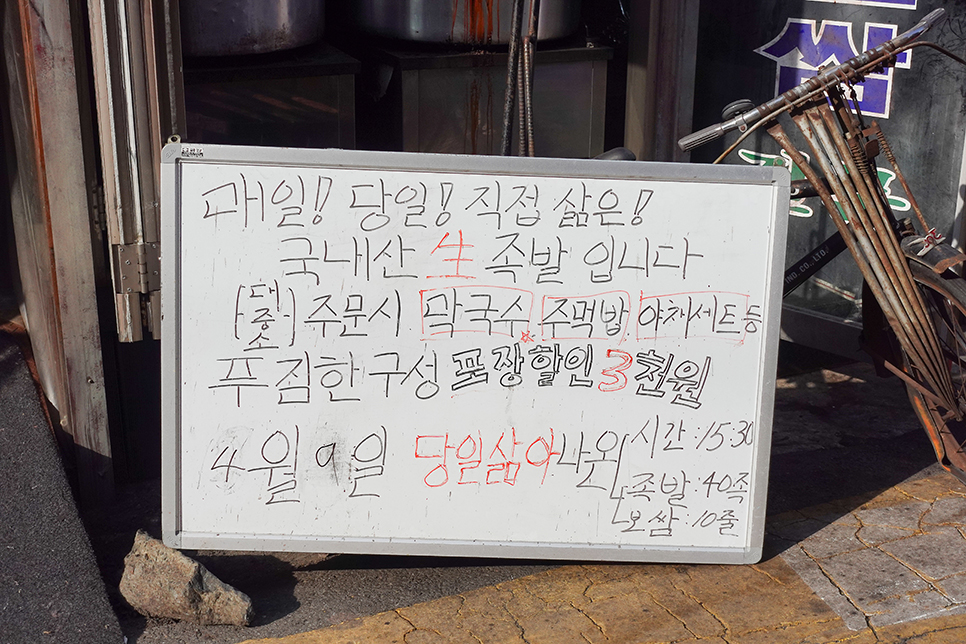 매일! 당일! 직접 삶은!
국내산 生 족발 입니다
(대 중 소) 주문시 막국수 주먹밥 야채세트등
푸짐한 구성 포장할인 3천원
4월 9일 당일삶아나와 시간:15:30
족발:40족
보쌈:10줄
쌈
IND. CO., LTD.